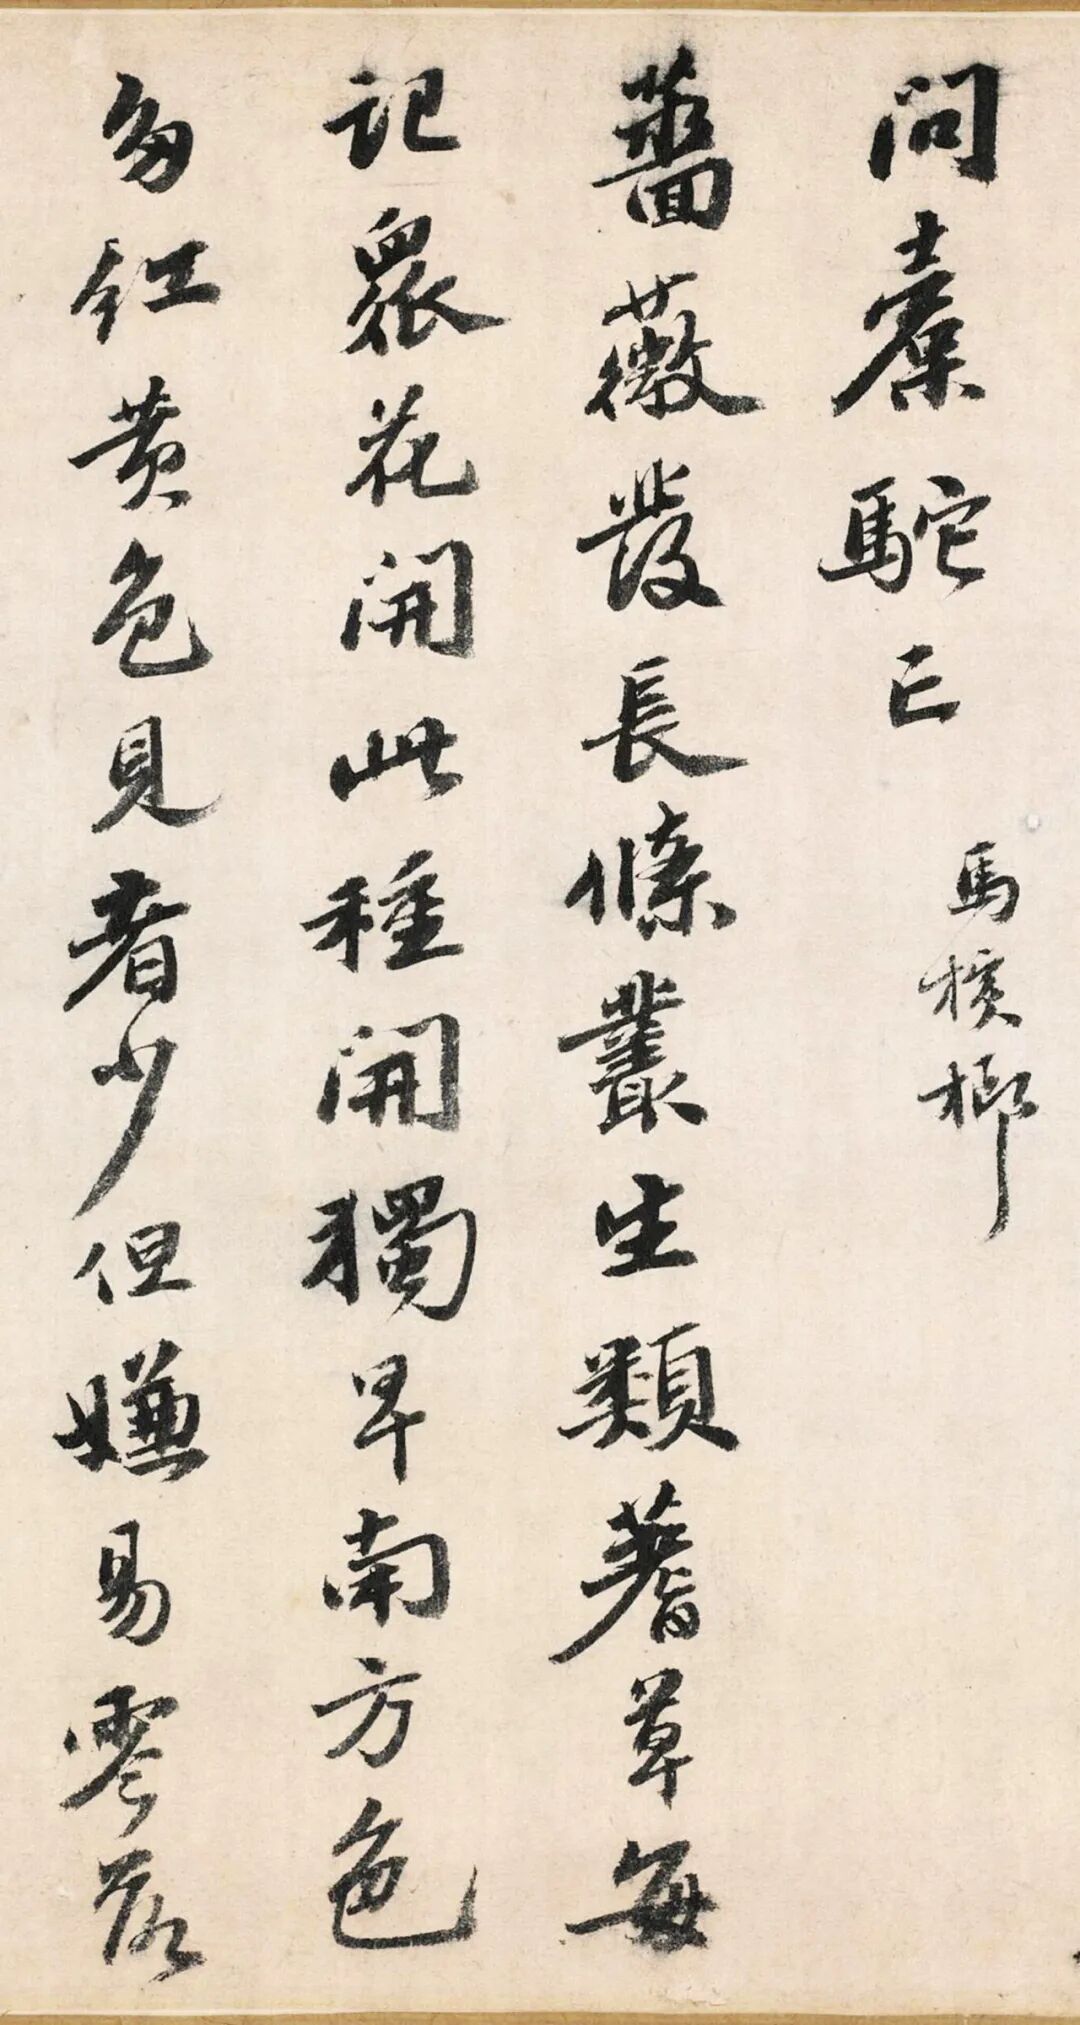 問橐駝已
馬檳榔
薔薇發長條叢生類蓍草每
記衆花開此種開獨早南方色
多紅黄色見者少但嫌易零落